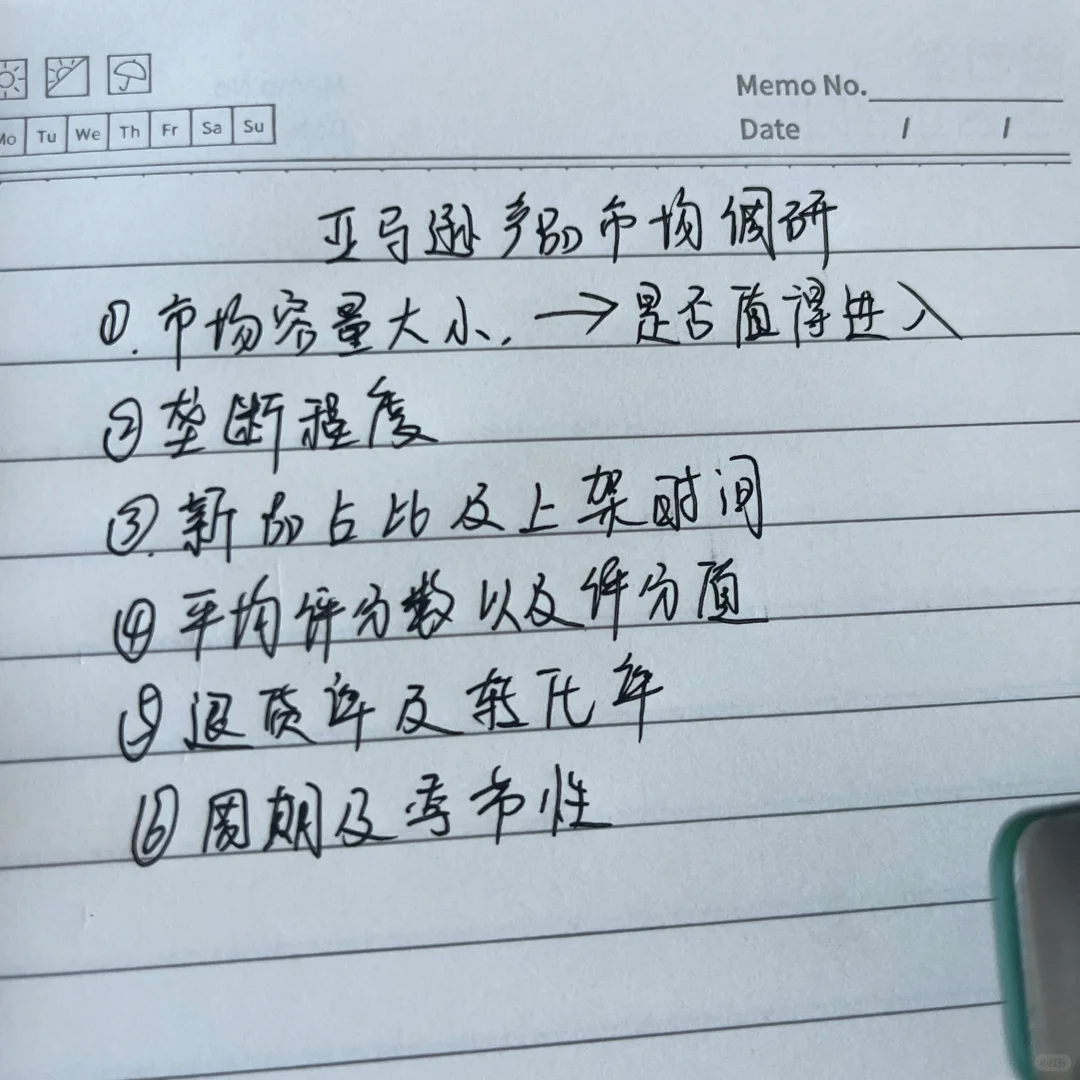 Memo No.
Mo Tu We Th Fr Sa Su
Date / /
亚马逊产品市场调研
①.市场容量大小. →是否值得进入
②垄断程度
③.新品占比及上架时间
④平均评分数以及评分值
⑤退货率及转化率
⑥周期及季节性